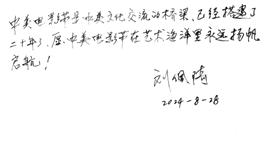 中美电影节是中美文化交流的桥梁、已经搭建了
二十年了，愿中美电影节在艺术海洋里永远扬帆
启航！
刘佩琦
2024-8-28